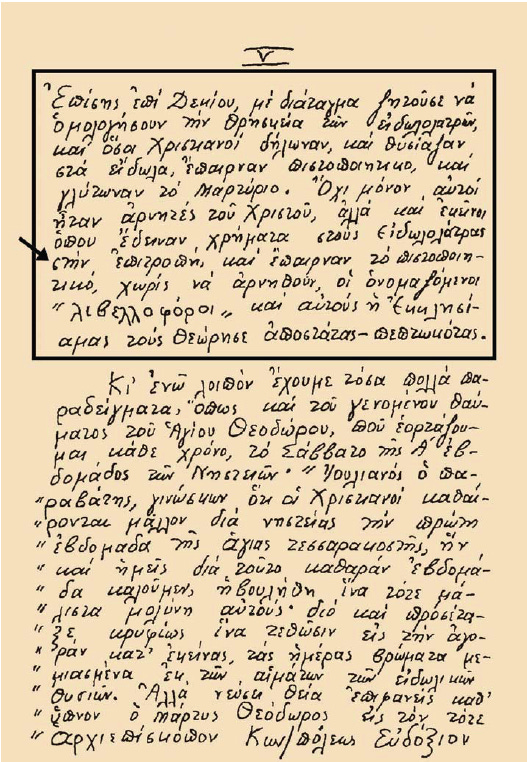 V
Ἐπίσης ἐπί Δεκίου, μέ διάταγμα ζητοῦσε νά
ὁμολογήσουν τήν θρησκεία τῶν εἰδωλολατρῶν,
καί ὅσοι Χριστιανοί δήλωναν, καί θυσίαζαν
στά εἴδωλα, ἔπαιρναν πιστοποιητικό, καί
γλύτωναν τό μαρτύριο. Ὄχι μόνον αὐτοί
ἦταν ἀρνητές τοῦ Χριστοῦ, ἀλλά καί ἐκεῖνοι
ὁπου ἔδειναν χρήματα στούς Εἰδωλολάτρας
στήν ἐπιτροπή, καί ἔπαιρναν τό πιστοποιη-
τικό, χωρίς νά ἀρνηθοῦν, οἱ ὀνομαζόμενοι
"λιβελλοφόροι" καί αὐτούς ἡ Ἐκκλησί-
α μας τούς θεώρησε ἀποστάτας - πεπτωκότας.
Κι' ἐνῶ λοιπόν ἔχουμε τόσα πολλά πα-
ραδείγματα, ὅπως καί τοῦ γενομένου θαύ-
ματος τοῦ Ἁγίου Θεοδώρου, πού ἑορτάζου-
με κάθε χρόνο, τό Σάββατο τῆς Α' ἑβ-
δομάδος τῶν Νηστειῶν. "Ἰουλιανός ὁ πα-
"ραβάτης, γινώσκων ὅτι οἱ Χριστιανοί καθαί-
"ρονται μᾶλλον διά νηστείας τήν πρώτη
"ἑβδομάδα τῆς ἁγίας τεσσαρακοστῆς, ἥν
"καί ἡμεῖς διά τοῦτο καθαράν ἑβδομά-
"δα καλοῦμεν, ἠβουλήθη ἵνα τότε μά-
"λιστα μολύνη αὐτούς· διό καί προσέτα-
"ξε κρυφίως ἵνα τεθῶσιν εἰς τήν ἀγο-
"ράν κατ' ἐκείνας, τάς ἡμέρας βρώματα με-
"μιασμένα ἐκ τῶν αἱμάτων τῶν εἰδωλικῶν
"θυσιῶν. Ἀλλά νεύσει θεία ἐπιφανείς καθ'
"ὕπνον ὁ Μάρτυς Θεόδωρος εἰς τόν τότε
"Ἀρχιεπίσκοπον Κων/πόλεως Εὐδόξιον